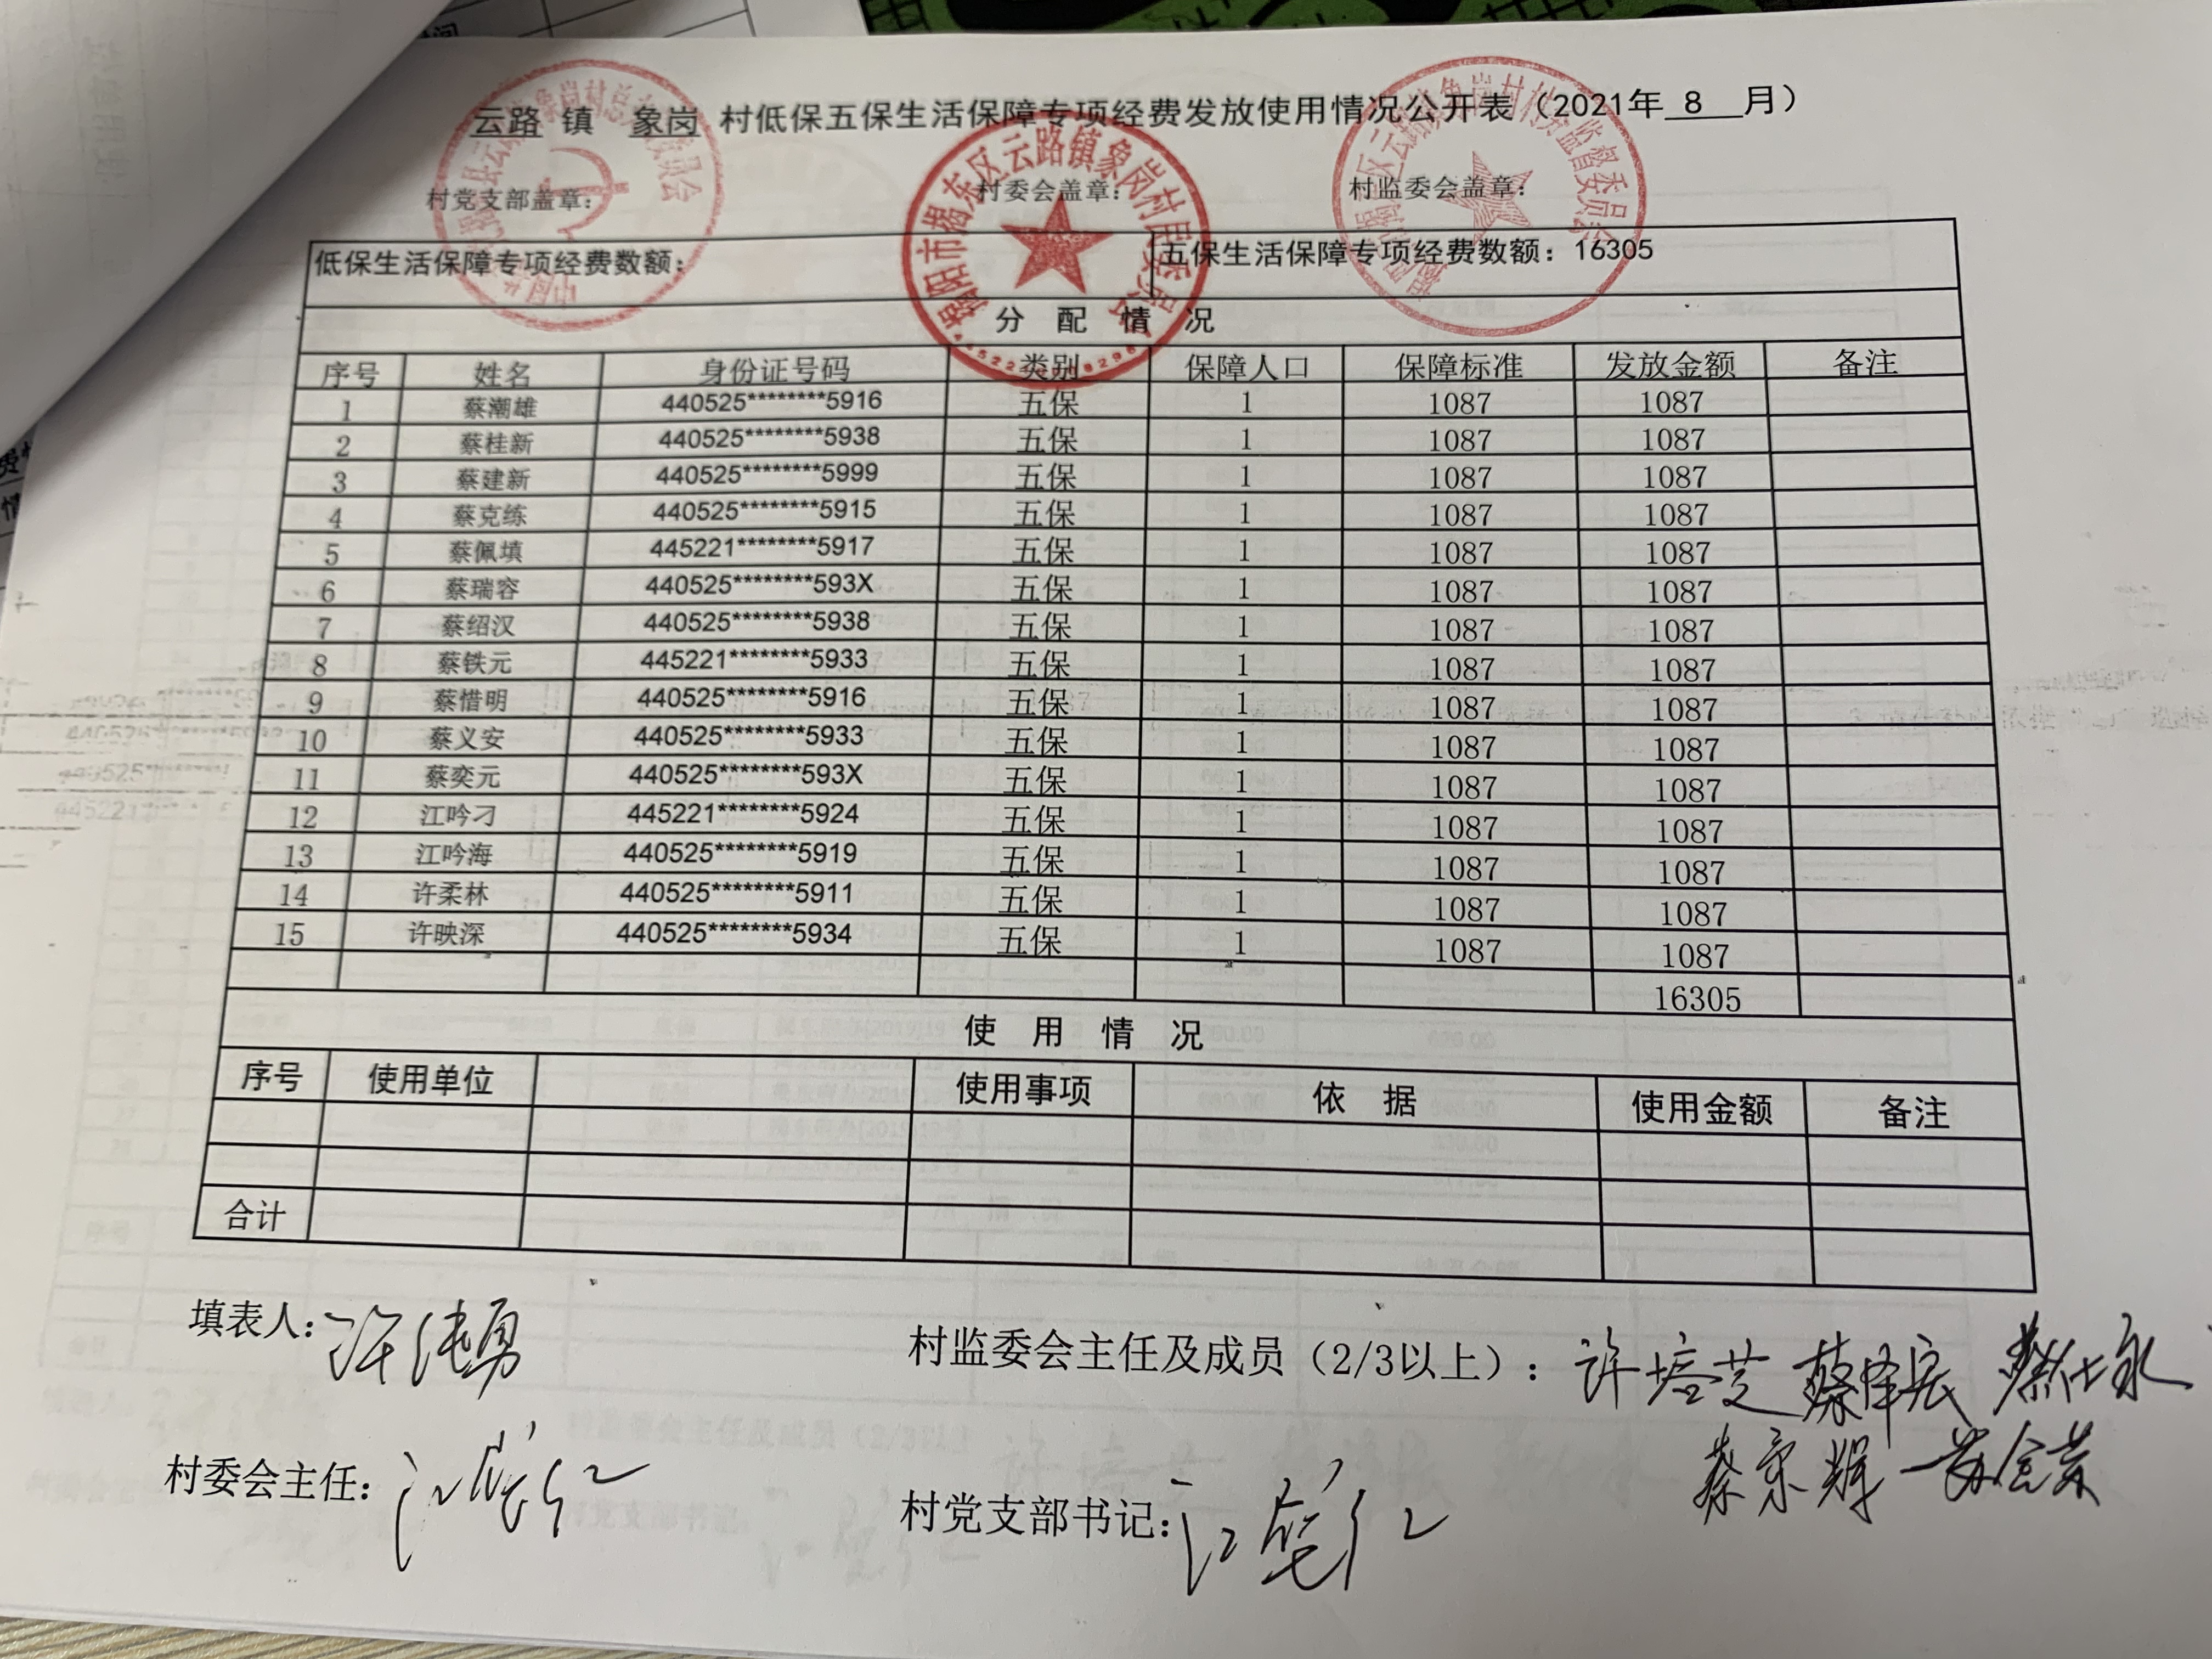 云路 镇 象岗 村低保五保生活保障专项经费发放使用情况公开表（2021年 8 月）
村党支部盖章： 村委会盖章： 村监委会盖章：
揭阳市揭东区云路镇象岗村居民委员会
低保生活保障专项经费数额： 五保生活保障专项经费数额：16305
分 配 情 况
序号 姓名 身份证号码 类别 保障人口 保障标准 发放金额 备注
1 蔡潮雄 440525********5916 五保 1 1087 1087
2 蔡桂新 440525********5938 五保 1 1087 1087
3 蔡建新 440525********5999 五保 1 1087 1087
4 蔡克练 440525********5915 五保 1 1087 1087
5 蔡佩填 445221********5917 五保 1 1087 1087
6 蔡瑞容 440525********593X 五保 1 1087 1087
7 蔡绍汉 440525********5938 五保 1 1087 1087
8 蔡铁元 445221********5933 五保 1 1087 1087
9 蔡惜明 440525********5916 五保 1 1087 1087
10 蔡义安 440525********5933 五保 1 1087 1087
11 蔡奕元 440525********593X 五保 1 1087 1087
12 江吟刁 445221********5924 五保 1 1087 1087
13 江吟海 440525********5919 五保 1 1087 1087
14 许柔林 440525********5911 五保 1 1087 1087
15 许映深 440525********5934 五保 1 1087 1087
16305
使 用 情 况
序号 使用单位 使用事项 依 据 使用金额 备注
合计
填表人： 村监委会主任及成员（2/3以上）：许培芝 蔡泽宏 蔡仕永
村委会主任： 村党支部书记：